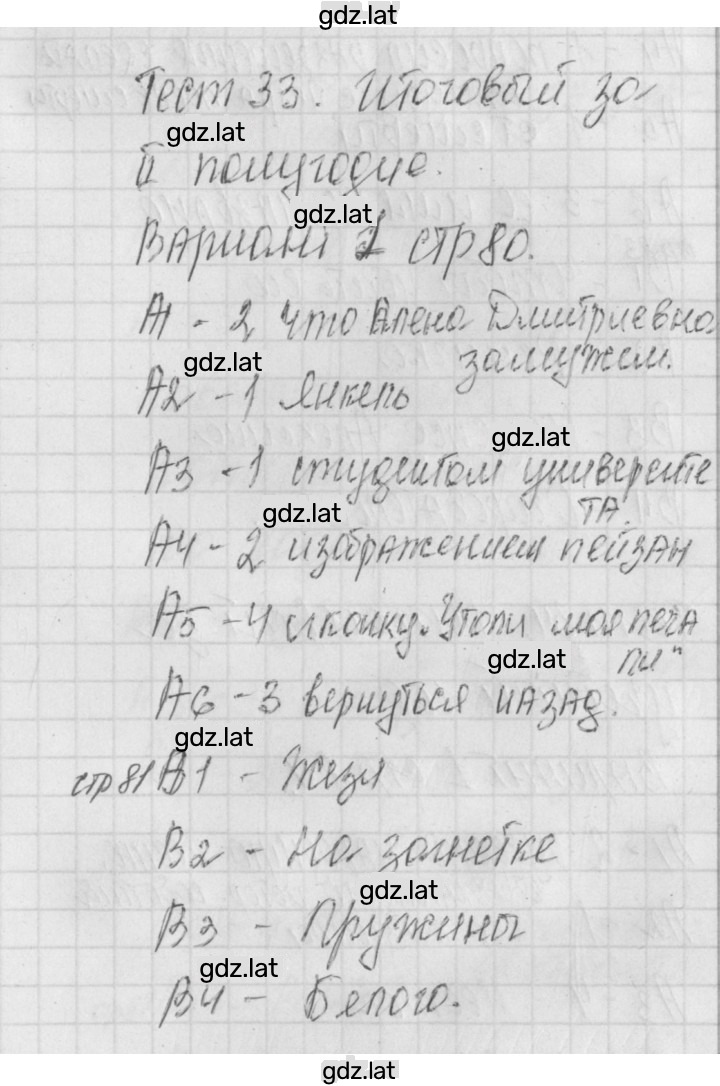 gdz.lat
Тест 33. Итоговый за
gdz.lat
II полугодие.
gdz.lat
Вариант 1 стр 80.
А1 - 2 что Алена Дмитриевна
замужем.
gdz.lat
А2 - 1 Янкель
gdz.lat
А3 - 1 студентом университе
та.
gdz.lat
А4 - 2 изображением пейзан
А5 - 4 иконку. Утоли моя печа
ли"
gdz.lat
А6 - 3 вернуться назад.
gdz.lat
стр 81 В1 - Жезл
В2 - На загнетке
gdz.lat
В3 - Пружины
gdz.lat
В4 - Белого.
gdz.lat